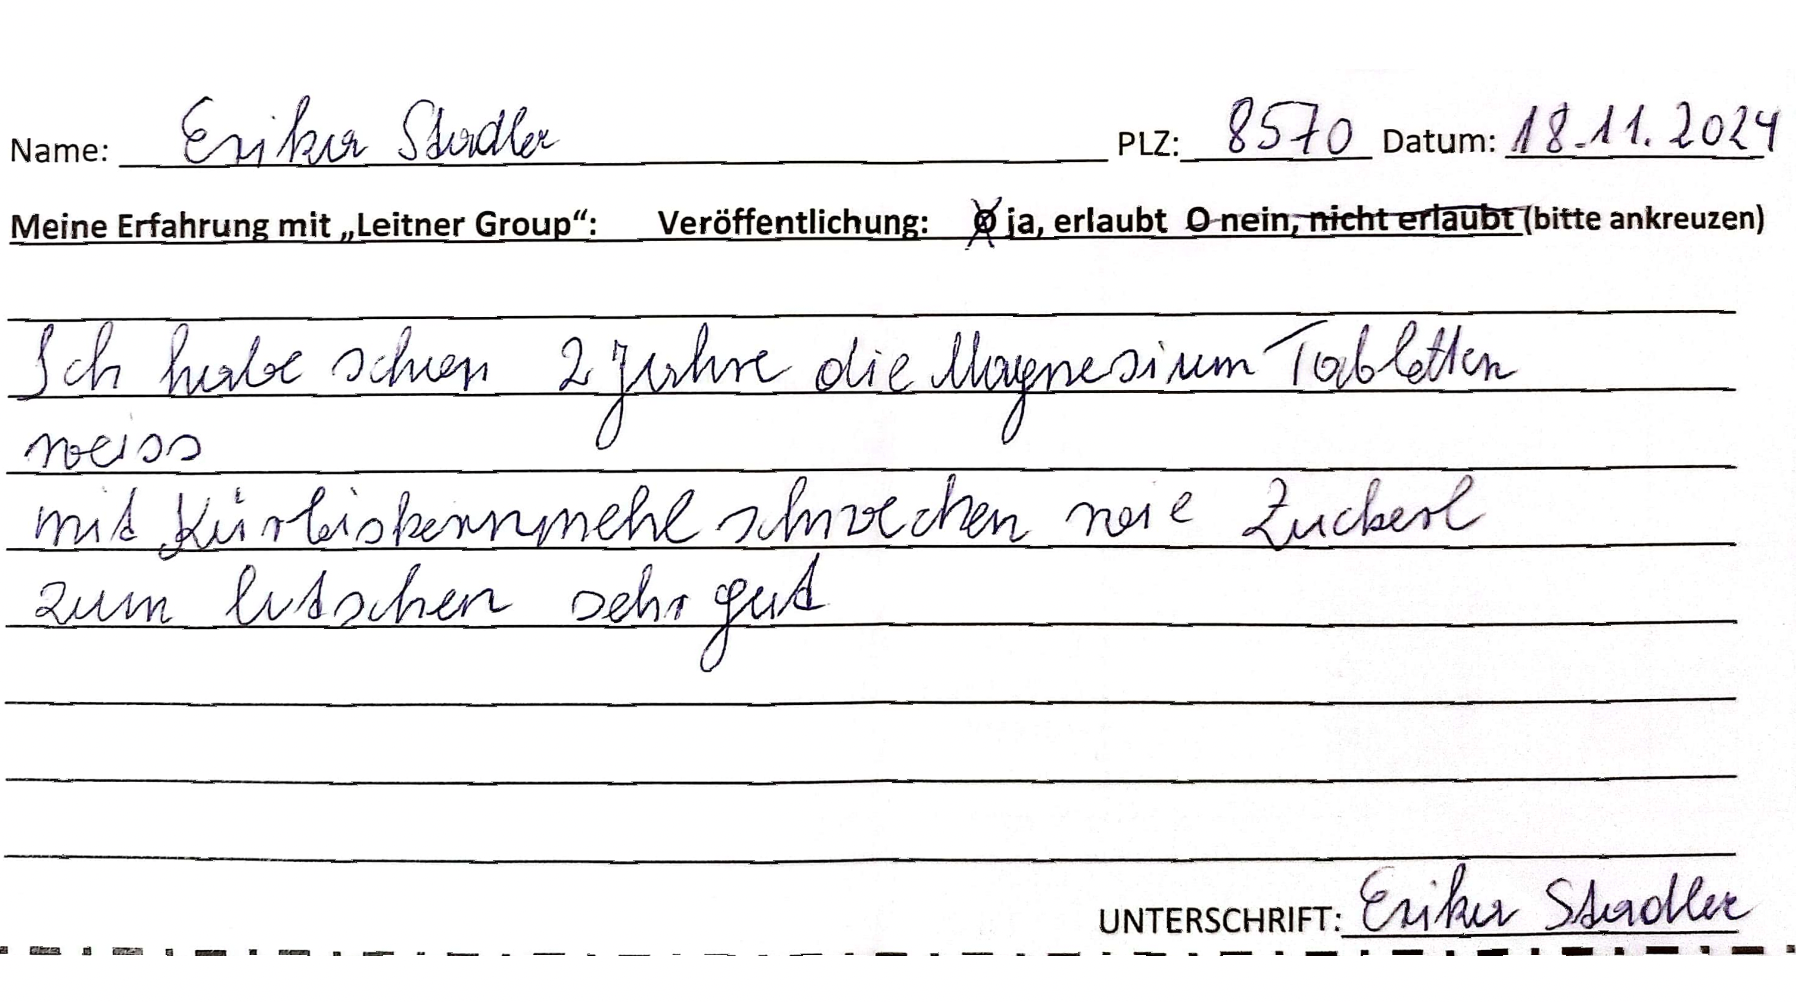 Name: Erika Stadler PLZ: 8570 Datum: 18.11.2024
Meine Erfahrung mit „Leitner Group“: Veröffentlichung: O ja, erlaubt O nein, nicht erlaubt (bitte ankreuzen)
Ich habe schon 2 Jahre die Magnesium Tabletten
weiss
mit Kürbiskernmehl schmecken wie Zuckerl
zum lutschen sehr gut
UNTERSCHRIFT: Erika Stadler